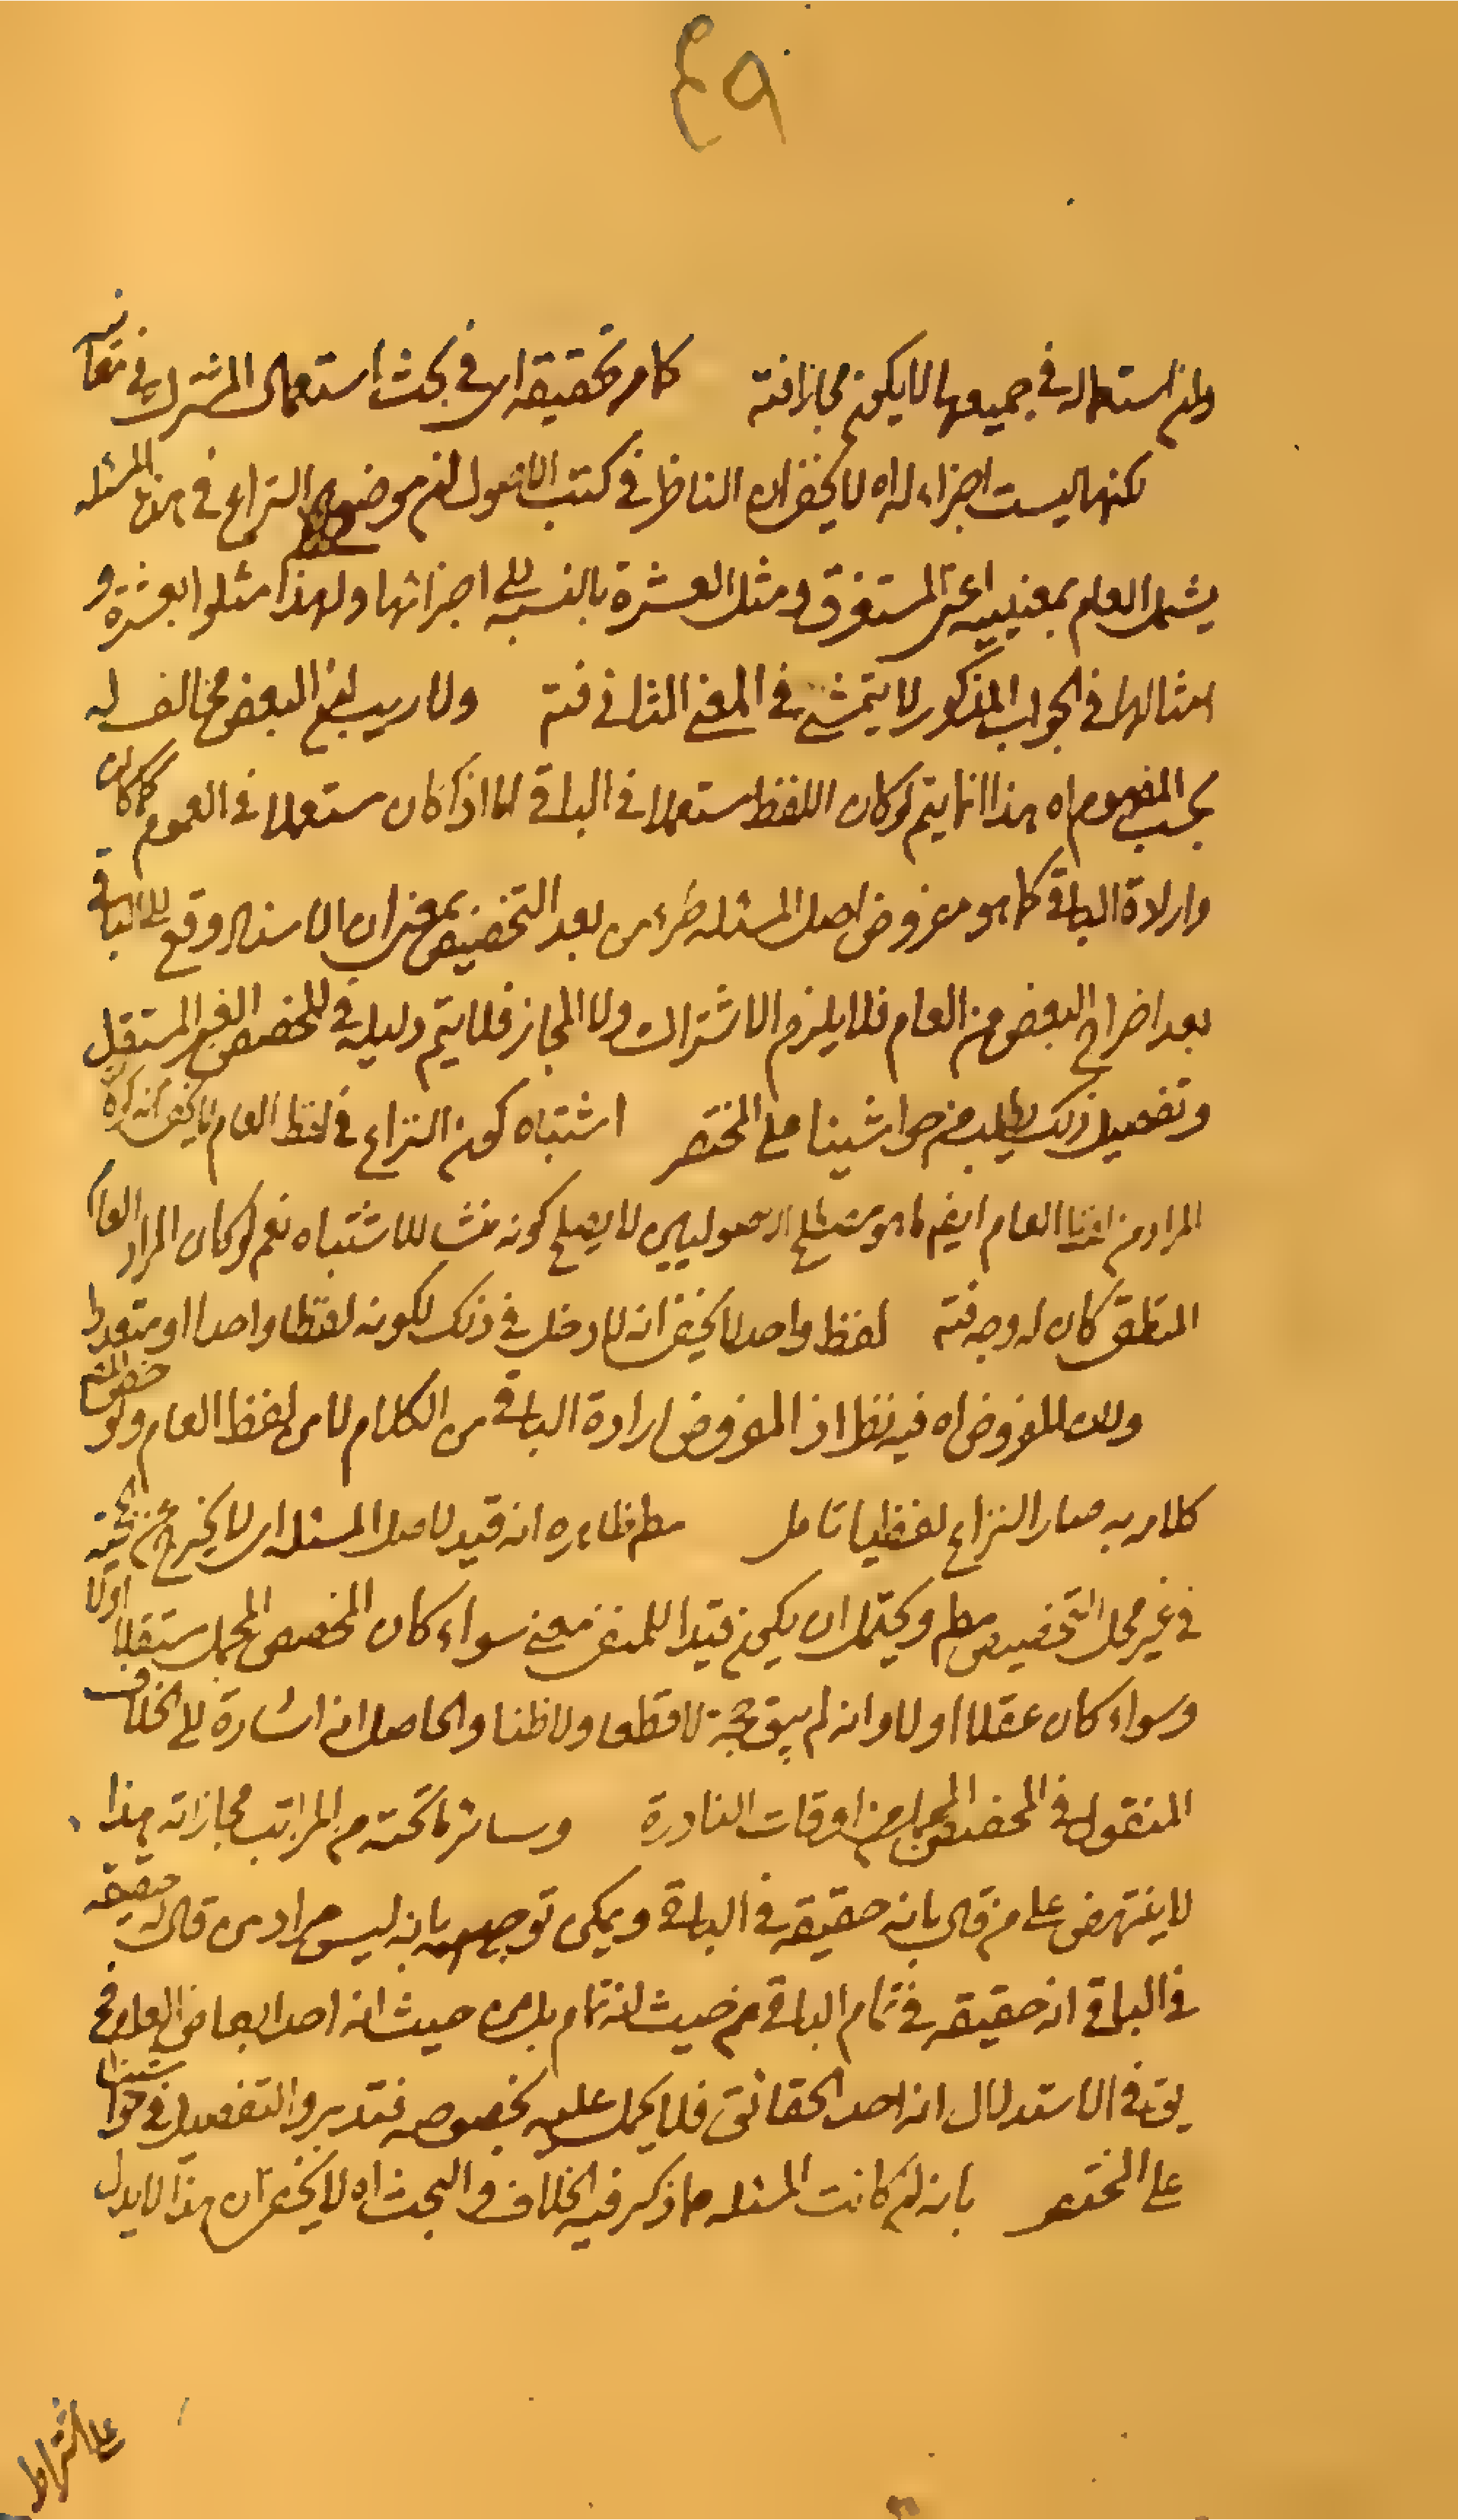 ٤٩
وان استعماله في جميعها لا يكون مجازا فته كما مر تحقيقه اى في بحث استعمال المشترك في معانيه
لكنها ليست اجزاء له اه لا يخفى ان الناظر في كتب الاصول ان موضوع النزاع في هذه المسئله
يشمل العام بمعنييه اعنى المستغرق ومثل العشرة بالنسبه الى اجزائها ولهذا مثلوا بعشرة و
امثالها في الجواب المذكور لا يتمشى في المعنى الثاني فته ولا ريب ان البعض مخالف له
بحسب المفهوم اه هذا انما يتم لو كان اللفظ مستعملا في الباقي اما اذا كان مستعملا في العموم كما كان
وارادة الباقي كما هو مفروض اصل المسئله طرء من بعد التخصيص بمعنى ان الاسناد وقع الى الباقي
بعد اخراج البعض من العام فلا يلزم الاشتراك ولا المجاز فلا يتم دليله في المخصص الغير المستقل
وتفصيل ذلك يطلب من حواشينا على المختصر اشتباه كون النزاع في لفظ العام لا يخفى انه لو كان
المراد من لفظ العام ايضا ما هو مصطلح الاصوليين لا يصلح كونه منشا للاشتباه نعم لو كان المراد العام
المنطقي كان له وجه فته لفظ واحد لا يخفى انه لا دخل في ذلك لكونه لفظا واحدا او متعددا
ولان المفروض اه فيه نظر اذ المفروض ارادة الباقي من الكلام لا من لفظ العام ولو خص
كلامه به صار النزاع لفظيا تامل مطم ظاهره انه قيد لاصل المسئله اى لا يخرج عن الحجية
في غير محل التخصيص مطم ويحتمل ان يكون قيدا للمنفى معنى سواء كان المخصص المجمل مستقلا اولا
وسواء كان عقلا اولا وانه لم يبق حجة لا قطعا ولا ظنا والحاصل انه اشارة الى الخلاف
المنقول في المخصص المجمل من اوقات النادرة وسائر ما تحته من المراتب مجازاته هذا
لا ينتهض على من قال بانه حقيقه في الباقي ويمكن توجيهه بانه ليس مراد من قال انه حقيقه
في الباقي انه حقيقه في تمام الباقي من حيث انه تمام بل من حيث انه احد ابعاض العام فح
يق في الاستدلال انه احد الحقائق فلا يحمل عليه بخصوصه فتدبر والتفصيل في حواشينا
على المختصر بانه لو كانت المسئله مما ذكر فيه الخلاف والبحث اه لا يخفى ان هذا لا يدل